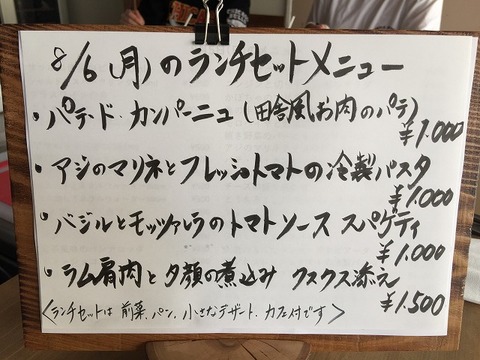 8/6(月)のランチセットメニュー
・パテ・ド・カンパーニュ(田舎風お肉のパテ)
¥1.000
・アジのマリネとフレッシュトマトの冷製パスタ
¥1.000
・バジルとモッツァレラのトマトソース スパゲティ
¥1.000
・ラム肩肉と夕顔の煮込み クスクス添え
¥1.500
<ランチセットは 前菜、パン、小さなデザート、カフェ付です>